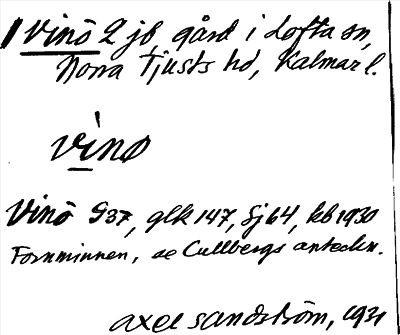 Vinö 2 jb, gård i Lofta sn,
Norra Tjusts hd, Kalmar l.
vìnø
Vinö G37, glk 147, Sj 64, kb 1930
Fornminnen, se Cullbergs anteckn.
Axel Sandström, 1931